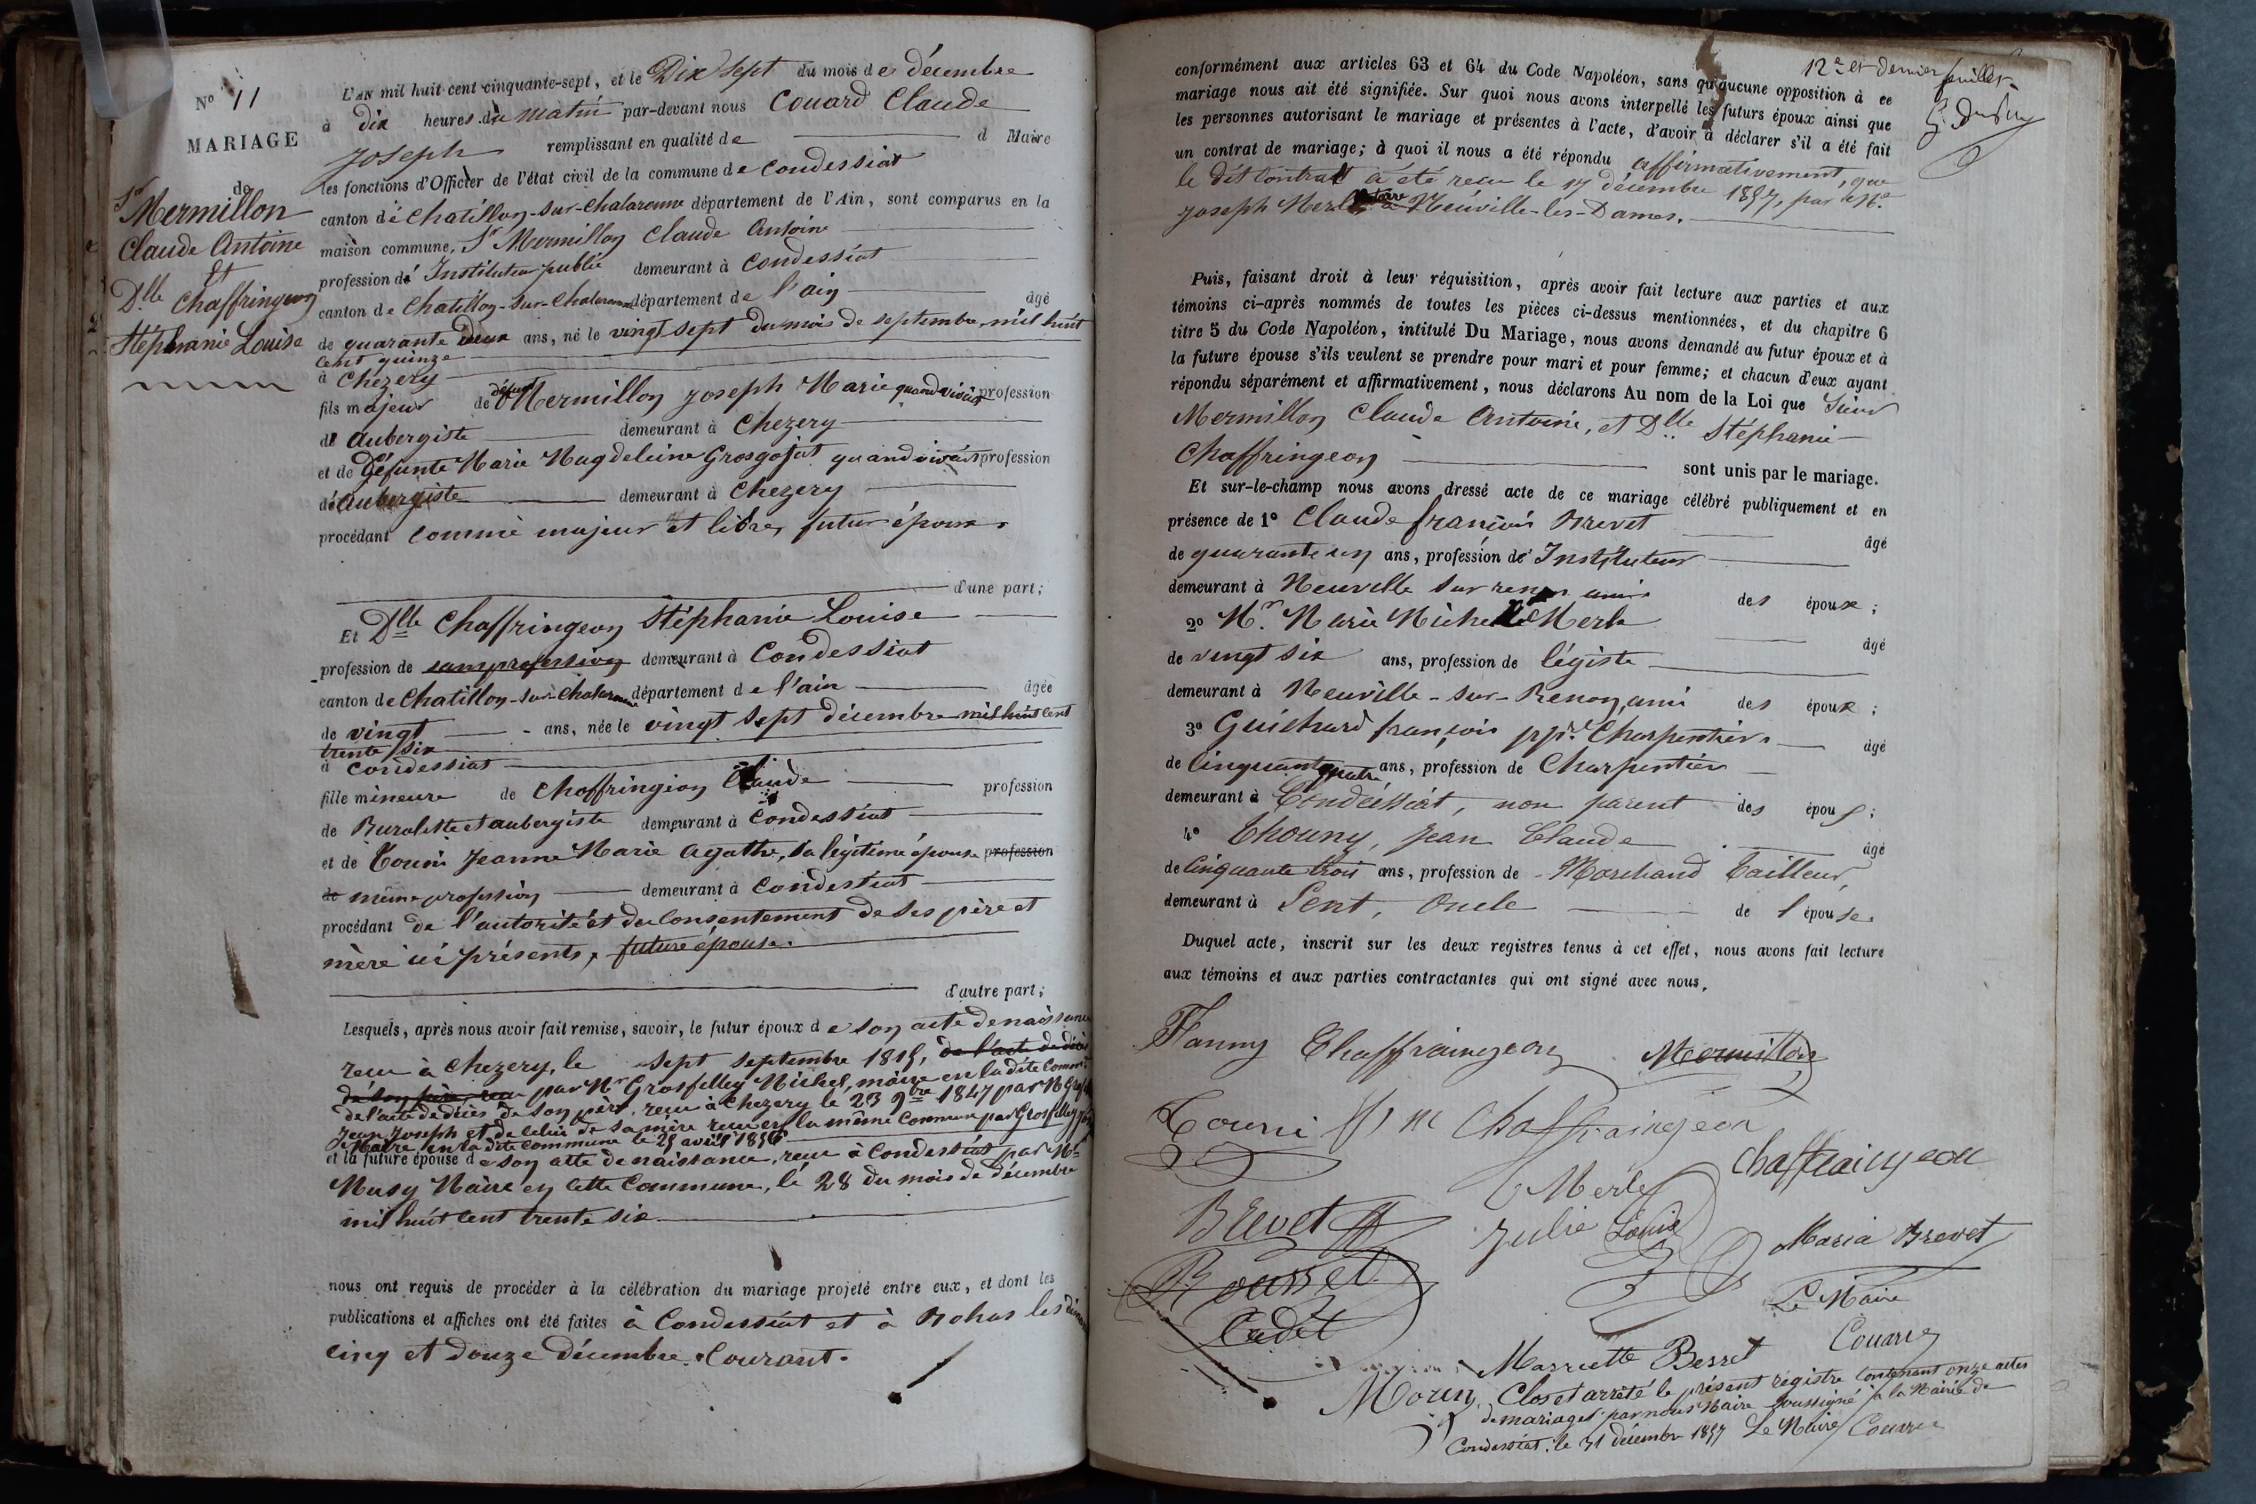 N° 11
MARIAGE
de
Sr Mermillon
Claude Antoine
Et
Dlle Chaffringeon
Stéphanie Louise
L'AN mil huit cent cinquante-sept, et le Dix Sept du mois de décembre
à dix heures du matin par-devant nous Couard Claude
Joseph remplissant en qualité de d Maire
les fonctions d'Officier de l'état civil de la commune de Condessiat
canton de Chatillon-sur-Chalaronne département de l'Ain, sont comparus en la
maison commune, Sr Mermillon Claude Antoine
profession de Instituteur public demeurant à Condessiat
canton de Chatillon-sur-Chalaronne département de l'ain âgé
de quarante deux ans, né le vingt sept du mois de septembre mil huit
cent quinze
à Chezery
fils majeur de défunt Mermillon Joseph Marie quand vivait profession
de aubergiste demeurant à Chezery
et de Défunte Marie Magdeleine Grosgojat quand vivait profession
de aubergiste demeurant à Chezery
procédant comme majeur et libre, futur époux,
d'une part;
Et Dlle Chaffringeon Stéphanie Louise
profession de sans profession demeurant à Condessiat
canton de Chatillon-sur-Chalaronne département de l'ain âgée
de vingt ans, née le vingt sept décembre mil huit cent
trente six
à Condessiat
fille mineure de Chaffringeon Claude profession
de Buraliste et aubergiste demeurant à Condessiat
et de Touni Jeanne Marie Agathe, sa légitime épouse profession
de même profession demeurant à Condessiat
procédant de l'autorité et du Consentement de ses père et
mère ici présents, future épouse.
d'autre part;
Lesquels, après nous avoir fait remise, savoir, le futur époux de son acte de naissance
reçu à Chezery, le sept septembre 1815, de l'acte de décès
de son père, reçu par Mr Grosfilley Michel, maire en la dite Commune
de l'acte de décès de son père, reçu à Chezery le 23 9bre 1847 par M
Jean Joseph et de celui de sa mère reçu en la même Commune par Grosfilley
Maire en la dite Commune le 25 avril 1856
et la future épouse de son acte de naissance, reçu à Condessiat par Mr
Musy Maire en cette Commune, le 28 du mois de décembre
mil huit cent trente six
nous ont requis de procéder à la célébration du mariage projeté entre eux, et dont les
publications et affiches ont été faites à Condessiat et à Rohas les
cinq et douze décembre Courant.
12e et dernier feuillet
conformément aux articles 63 et 64 du Code Napoléon, sans qu'aucune opposition à ce
mariage nous ait été signifiée. Sur quoi nous avons interpellé les futurs époux ainsi que
les personnes autorisant le mariage et présentes à l'acte, d'avoir à déclarer s'il a été fait
un contrat de mariage; à quoi il nous a été répondu affirmativement, que
le dit Contrat a été reçu le 17 décembre 1857, par Me
Joseph Merle notaire à Neuville-les-Dames.
Puis, faisant droit à leur réquisition, après avoir fait lecture aux parties et aux
témoins ci-après nommés de toutes les pièces ci-dessus mentionnées, et du chapitre 6
titre 5 du Code Napoléon, intitulé Du Mariage, nous avons demandé au futur époux et à
la future épouse s'ils veulent se prendre pour mari et pour femme; et chacun d'eux ayant
répondu séparément et affirmativement, nous déclarons Au nom de la Loi que Sieur
Mermillon Claude Antoine, et Dlle Stéphanie
Chaffringeon sont unis par le mariage.
Et sur-le-champ nous avons dressé acte de ce mariage célébré publiquement et en
présence de 1° Claude françois Brevet âgé
de quarante un ans, profession de Instituteur
demeurant à Neuville sur renon ami des époux;
2° Mr. Marie Michel Merle âgé
de vingt six ans, profession de légiste
demeurant à Neuville-sur-Renon, ami des époux;
3° Guichard françois ppre Charpentier âgé
de Cinquante quatre ans, profession de Charpentier
demeurant à Condeissiat, non parent des époux;
4° Thouny, Jean Claude âgé
de Cinquante trois ans, profession de Marchand Tailleur,
demeurant à Lent, Oncle de l'épouse.
Duquel acte, inscrit sur les deux registres tenus à cet effet, nous avons fait lecture
aux témoins et aux parties contractantes qui ont signé avec nous.
Fanny Chaffraingeon Mermillon
Touni ff m Chaffraingeon
Merle Chaffraingeon
Brevet Julie Louise Maria Brevet
Rousset Le Maire
Cadet Couard
Marriette Besset
Morin Clos et arrêté le présent registre contenant onze actes
de mariages par nous Maire soussigné à la Mairie de
Condessiat, le 31 décembre 1857 Le Maire Couard